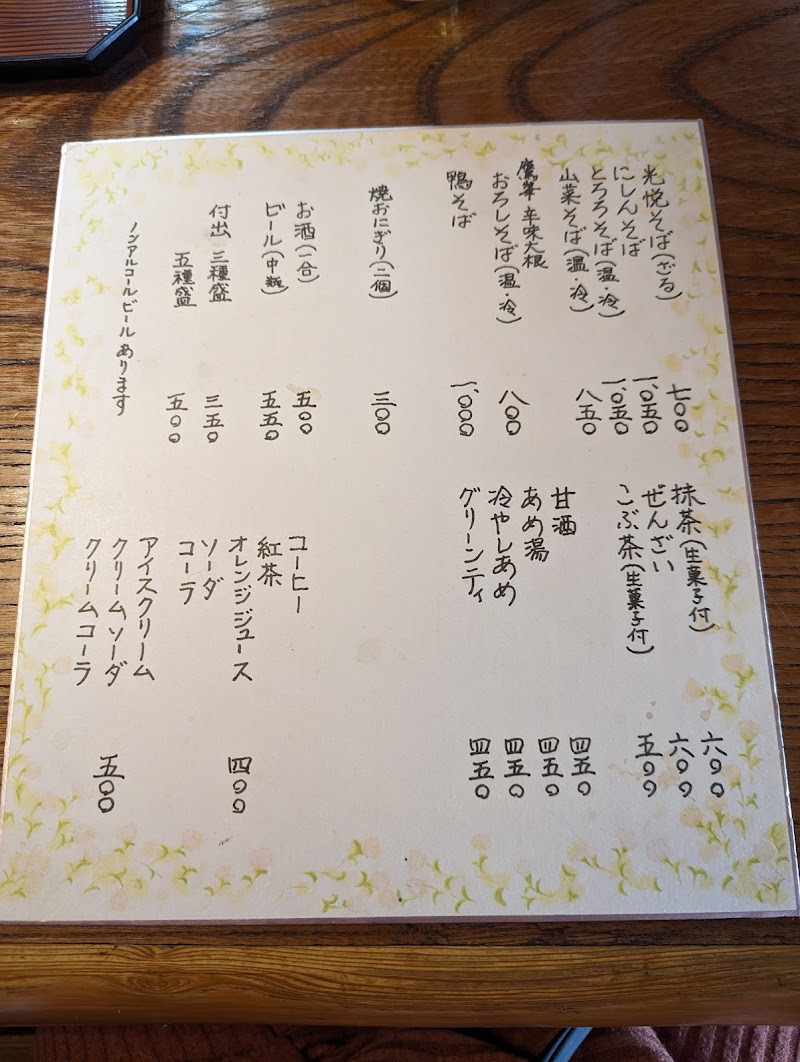 光悦そば(ざる) 七〇〇
にしんそば 一、〇五〇
とろろそば(温・冷) 一、〇五〇
山菜そば(温・冷) 八五〇
鷹峯 辛味大根
おろしそば(温・冷) 八〇〇
鴨そば 一、〇〇〇
焼おにぎり(二個) 三〇〇
お酒(一合) 五〇〇
ビール(中瓶) 五五〇
付出 三種盛 三五〇
五種盛 五〇〇
ノンアルコールビールあります
抹茶(生菓子付) 六〇〇
ぜんざい 六〇〇
こぶ茶(生菓子付) 五〇〇
甘酒 四五〇
あめ湯 四五〇
冷やしあめ 四五〇
グリーンティ 四五〇
コーヒー
紅茶
オレンジジュース 四〇〇
ソーダ
コーラ
アイスクリーム
クリームソーダ 五〇〇
クリームコーラ